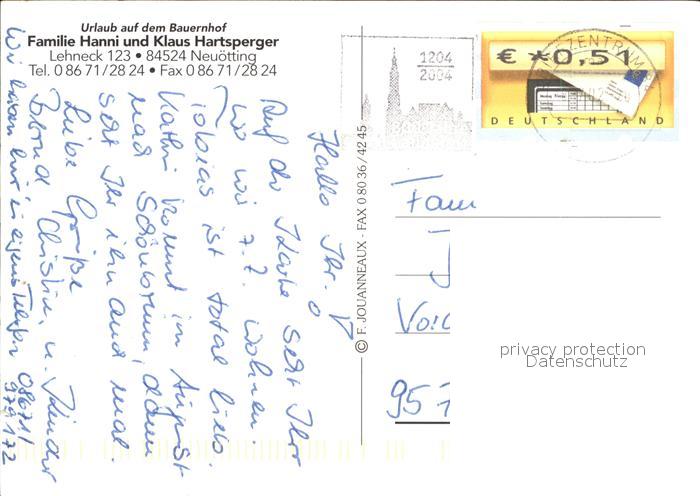 Urlaub auf dem Bauernhof
Familie Hanni und Klaus Hartsperger
Lehneck 123 • 84524 Neuötting
Tel. 0 86 71/28 24 • Fax 0 86 71/28 24
Hallo Ihr.
Auf der Karte seht Ihr
wo wir z.Z. wohnen.
Tobias ist total lieb.
Kathi kommt im August
nach dann
seht Ihr ihn auch mal.
Liebe Grüße
Christin, u. Kinder
Wir haben hier 'n eigenes Telefon 08671/
979172
© F. JOUANNEAUX - FAX 0 80 36 / 42 45
1204
2004
€ *0,51
DEUTSCHLAND
ZENTRUM
Fam
95
privacy protection
Datenschutz